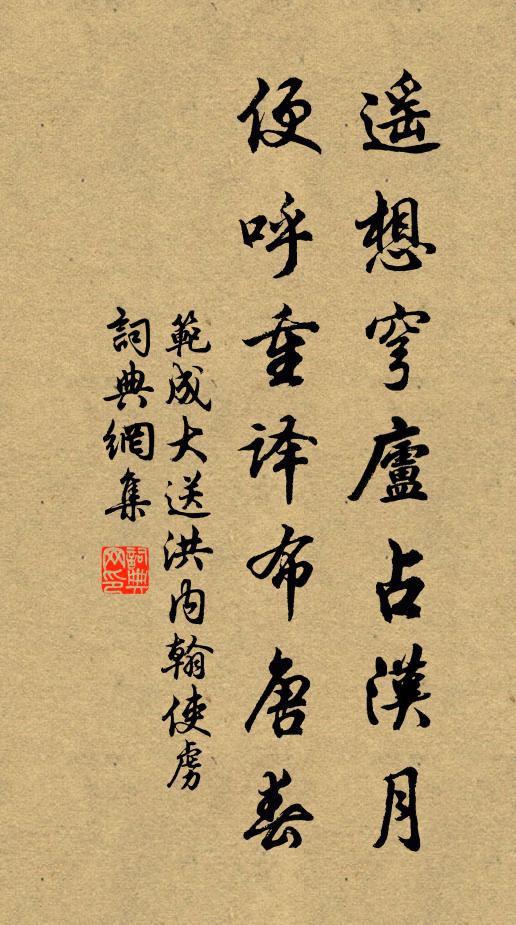 遥想穹廬占漢月
便呼重译布唐春
範成大送洪内翰使虜
詞典網集
詞典
网印